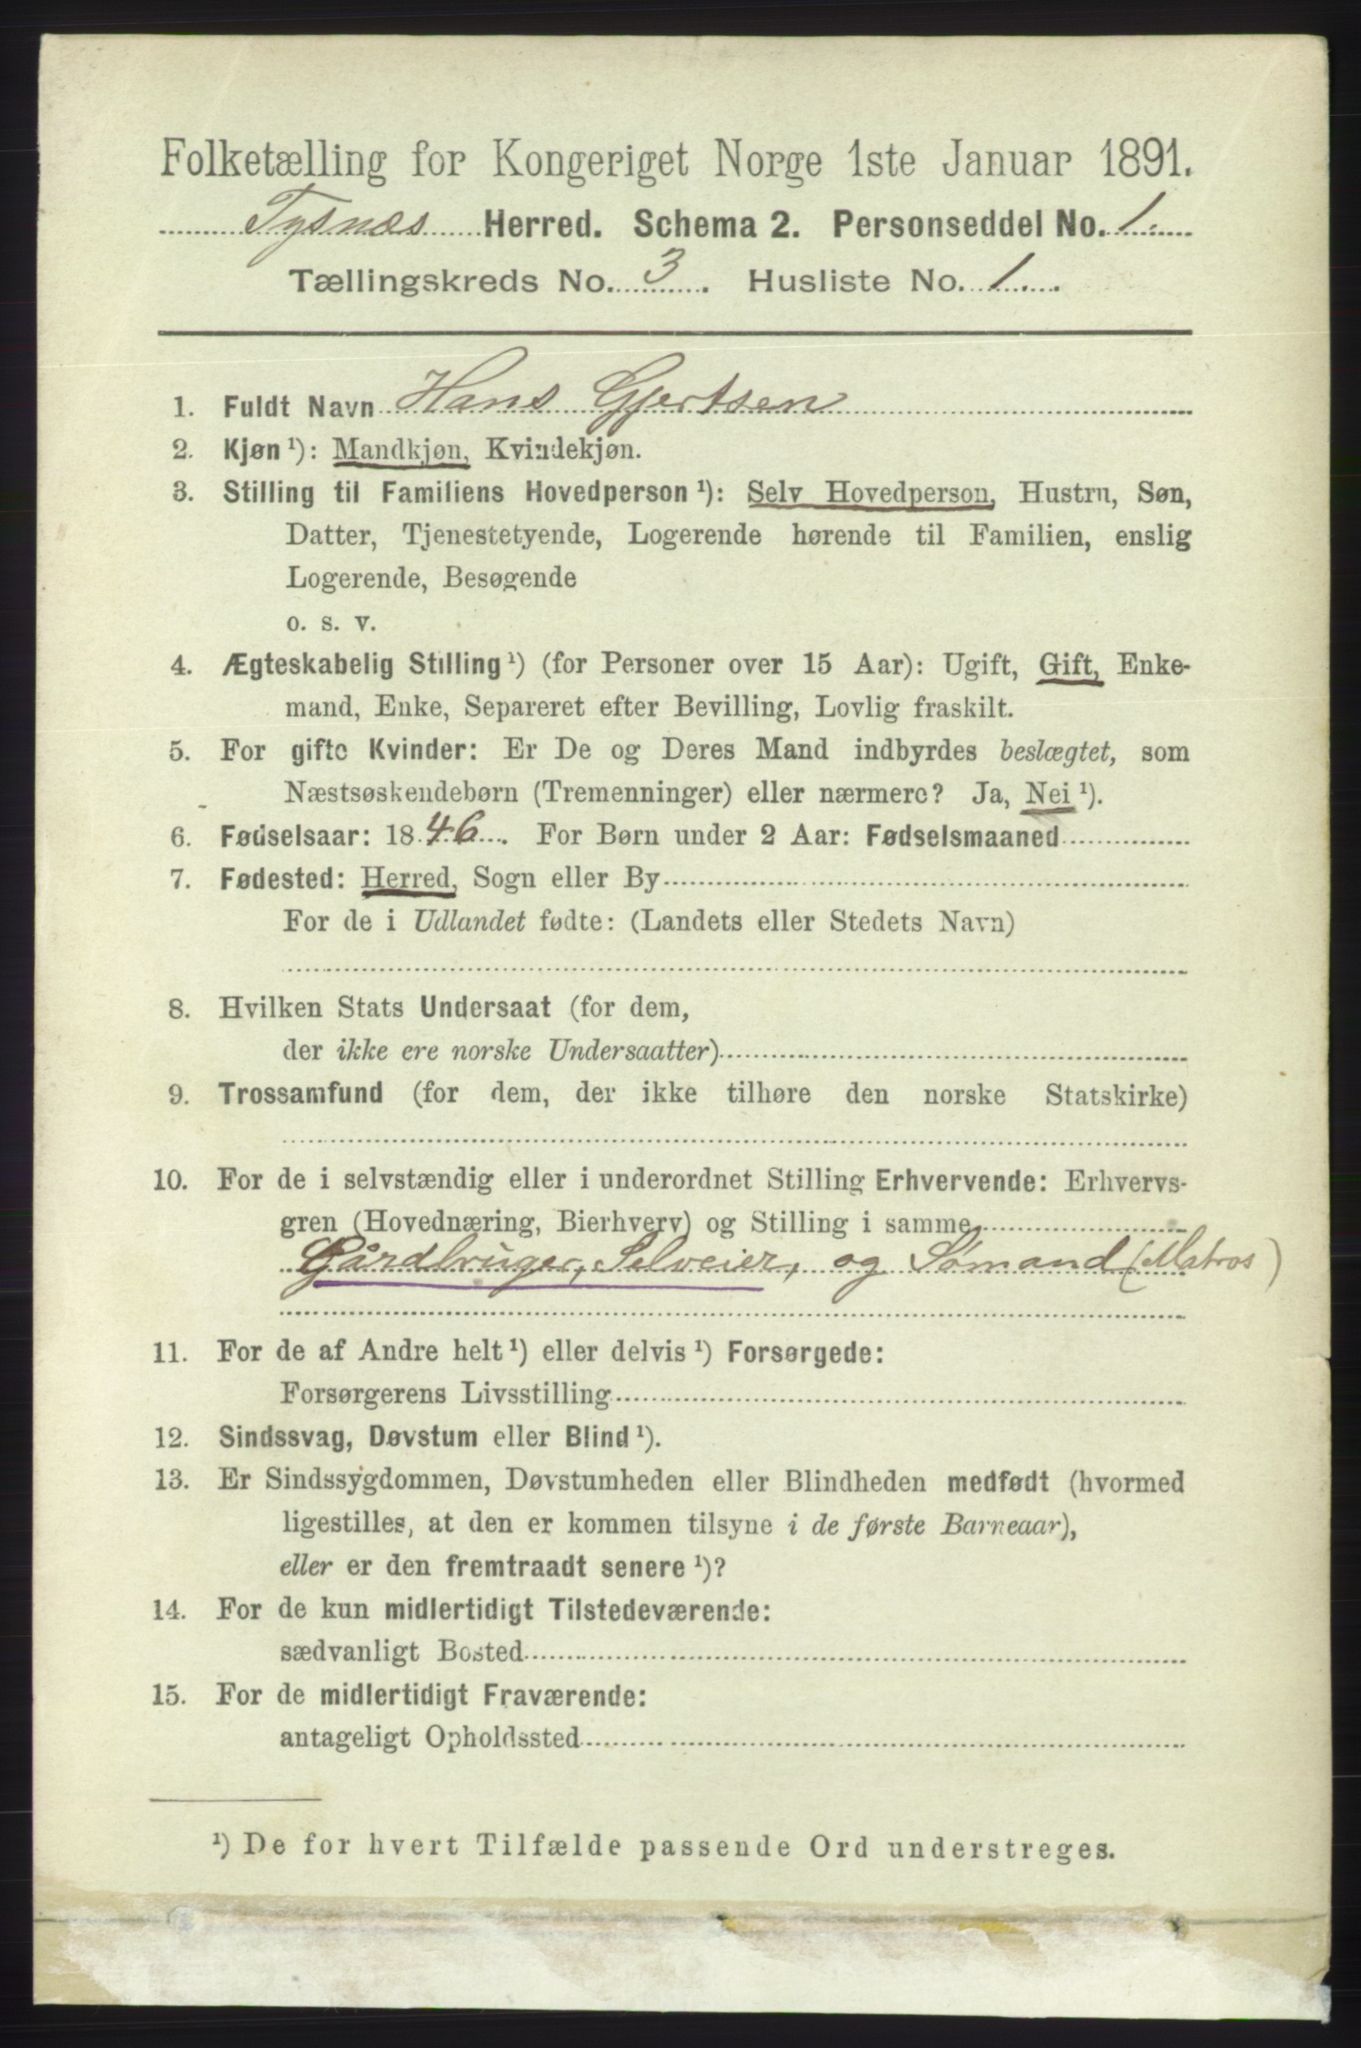 Folketælling for Kongeriget Norge 1ste Januar 1891.
Tysnæs Herred. Schema 2. Personseddel No. 1.
Tællingskreds No. 3. Husliste No. 1.
1. Fuldt Navn Hans Gjertsen
2. Kjøn ¹): Mandkjøn, Kvindekjøn.
3. Stilling til Familiens Hovedperson ¹): Selv Hovedperson, Hustru, Søn,
Datter, Tjenestetyende, Logerende hørende til Familien, enslig
Logerende, Besøgende
o. s. v.
4. Ægteskabelig Stilling ¹) (for Personer over 15 Aar): Ugift, Gift, Enke-
mand, Enke, Separeret efter Bevilling, Lovlig fraskilt.
5. For gifte Kvinder: Er De og Deres Mand indbyrdes beslægtet, som
Næstsøskendebørn (Tremenninger) eller nærmere? Ja, Nei ¹).
6. Fødselsaar: 1846. For Børn under 2 Aar: Fødselsmaaned
7. Fødested: Herred, Sogn eller By
For de i Udlandet fødte: (Landets eller Stedets Navn)
8. Hvilken Stats Undersaat (for dem,
der ikke ere norske Undersaatter)
9. Trossamfund (for dem, der ikke tilhøre den norske Statskirke)
10. For de i selvstændig eller i underordnet Stilling Erhvervende: Erhvervs-
gren (Hovednæring, Bierhverv) og Stilling i samme
Gårdbruger, Selveier, og Sømand (Matros)
11. For de af Andre helt ¹) eller delvis ¹) Forsørgede:
Forsørgerens Livsstilling
12. Sindssvag, Døvstum eller Blind ¹).
13. Er Sindssygdommen, Døvstumheden eller Blindheden medfødt (hvormed
ligestilles, at den er kommen tilsyne i de første Barneaar),
eller er den fremtraadt senere ¹)?
14. For de kun midlertidigt Tilstedeværende:
sædvanligt Bosted
15. For de midlertidigt Fraværende:
antageligt Opholdssted
¹) De for hvert Tilfælde passende Ord understreges.